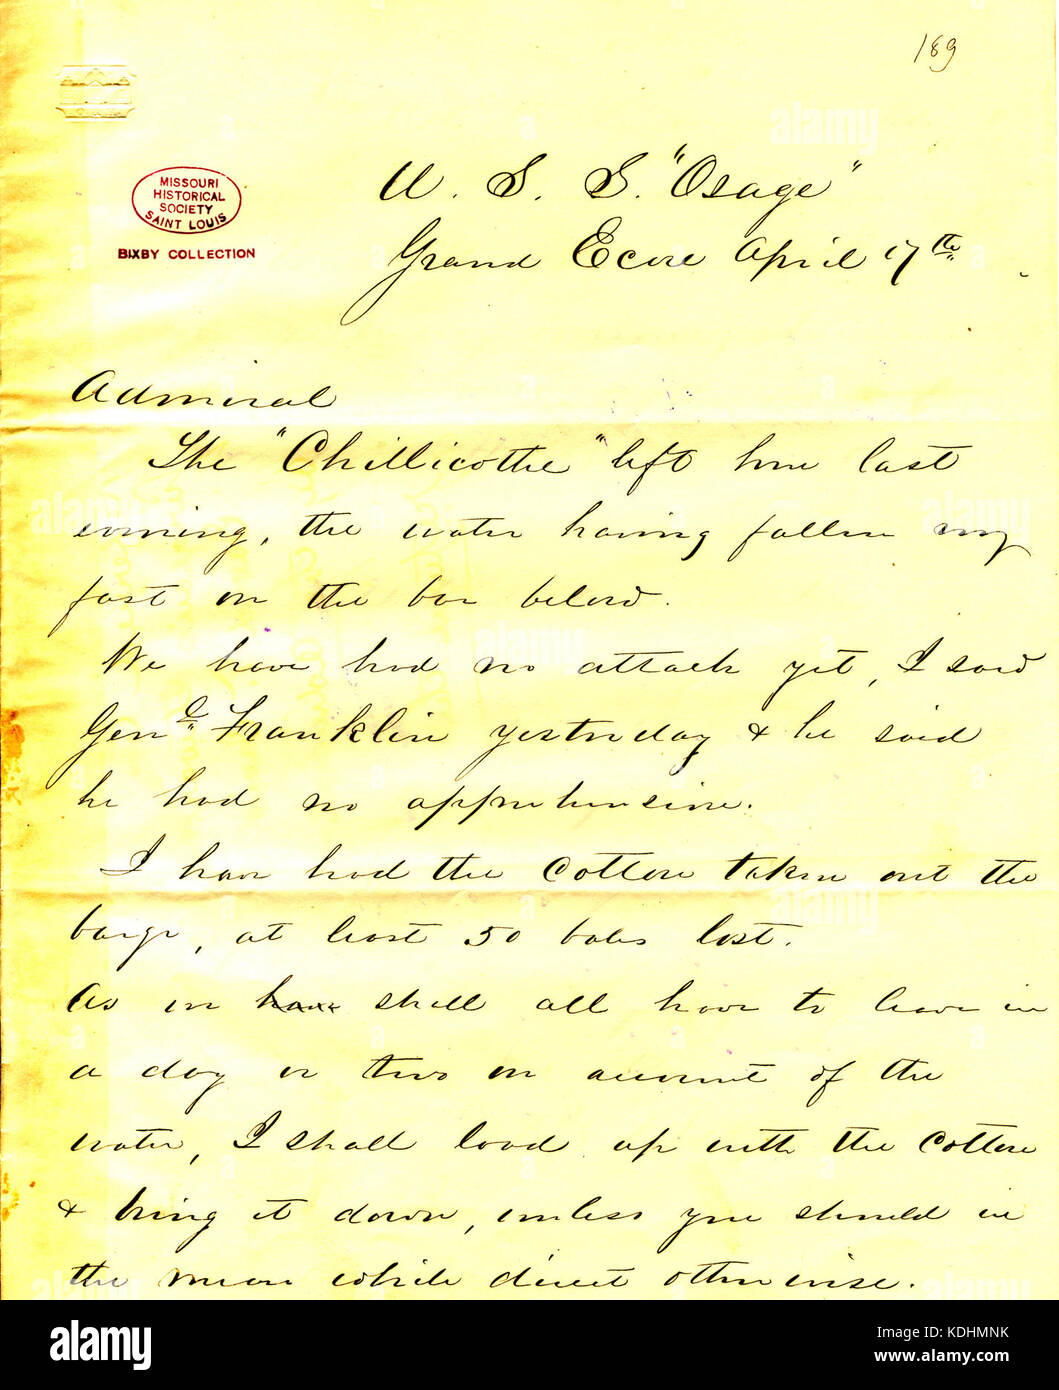 189
MISSOURI
HISTORICAL
SOCIETY
SAINT LOUIS
BIXBY COLLECTION
U. S. S. "Osage"
Grand Ecore April 17th
Admiral
The "Chillicothe" left here last
evening, the water having fallen very
fast on the bar below.
We have had no attack yet, I saw
Genl Franklin yesterday & he said
he had no apprehension.
I have had the Cotton taken out the
barge, at least 50 bales lost.
As we have shall all have to leave in
a day or two on account of the
water, I shall load up with the Cotton
& bring it down, unless you should in
the mean while direct otherwise.
alamy
Image ID: KDHMNK
www.alamy.com